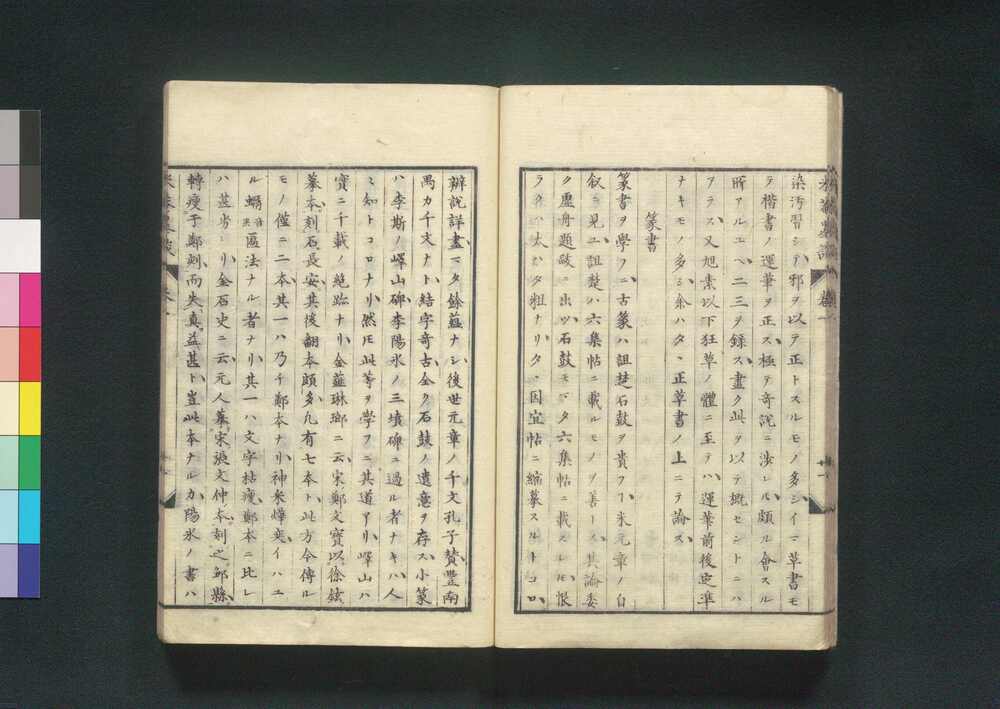 染汚習シテ邪ヲ以テ正トスルモノ多シイマ草書モ
テ楷書ノ運筆ヲ正ス極テ奇説ニ渉レル頗ル會スル
所アルユヘ二三ヲ録ス盡ク此ヲ以テ概セントニハ
アラス又旭素以下狂草ノ體ニ至テハ運筆前後定準
ナキモノ多シ余ハタヽ正草書ノ上ニテ論ス
篆書
篆書ヲ學フニ古篆ハ詛楚石鼓ヲ貴フヿ米元章ノ自
叙ニ見ユ詛楚ハ六集帖ニ載ルモノヲ善トス其論委
ク虚舟題跋ニ出ツ石鼓モマタ六集帖ニ載スレㇳモ恨
ラクハ太ハタ粗ナリタヽ因宜帖ニ縮摹スルトコロ
辦説詳盡マタ餘蘊ナシ後世元章ノ千文孔子賛豐南
禺カ千文ナト結字奇古全ク石鼓ノ遺意ヲ存ス小篆
ハ李斯ノ嶧山碑李陽氷ノ三墳碑ニ過ル者ナキハ人
ミ知トコロナリ然ㇳモ此等ヲ學フニ其道アリ嶧山ハ
實ニ千載ノ絶跡ナリ金薤琳瑯ニ云宋鄭文寶以徐鉉
摹本刻石長安其後翻本頗多凡有七本ト此方今傳ル
モノ僅ニ二本其一ハ乃チ鄭本ナリ神米燁奕イハユ
ル蝸匾法ナル者ナリ其一ハ文字枯痩鄭本ニ比レ
ハ甚劣レリ金石史ニ云元人摹宋張文仲本刻之鄒縣
轉痩于鄭刻而失真益甚ト豈此本ナルカ陽氷ノ書ハ